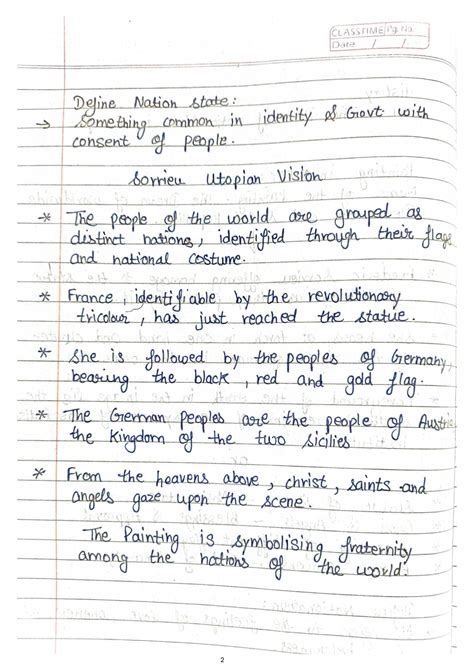 CLASSTIME Pg. No.
Date / /
Define Nation state:
→ Something common in identity & Govt with
consent of people.
Sorrieu Utopian Vision
* The people of the world are grouped as
distinct nations, identified through their flags
and national costume.
* France, identifiable by the revolutionary
tricolour, has just reached the statue.
* She is followed by the peoples of Germany,
bearing the black, red and gold flag.
* The German peoples are the people of Austria
the Kingdom of the two sicilies
* From the heavens above, christ, saints and
angels gaze upon the scene.
The Painting is symbolising fraternity
among the nations of the world.
2